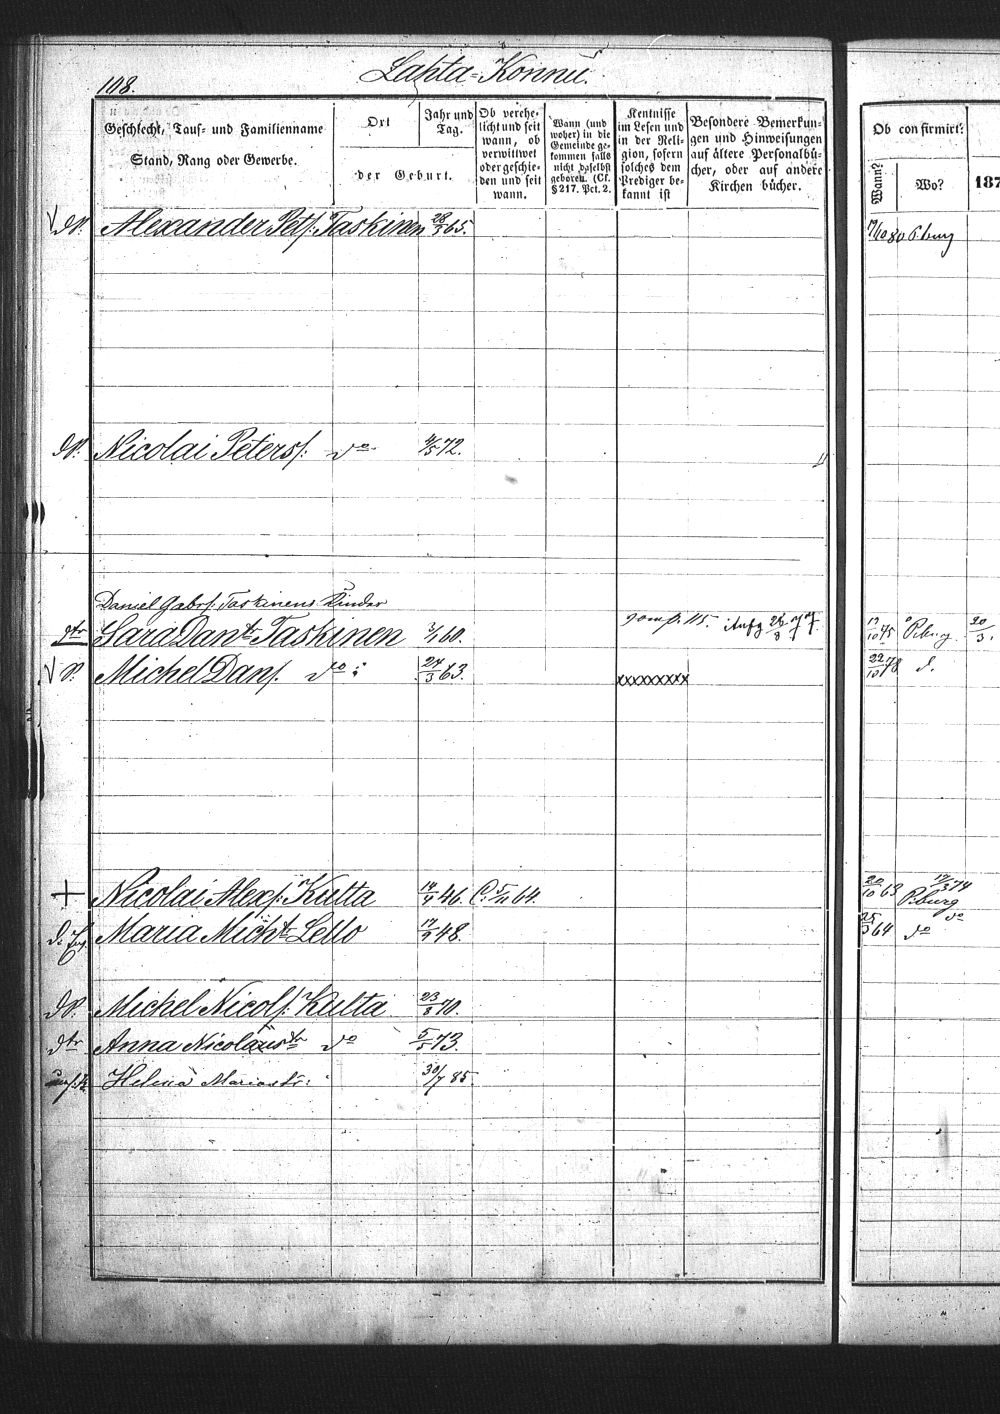 108.
Lahta-Konnu.
Geschlecht, Tauf- und Familienname
Stand, Rang oder Gewerbe.
Ort
Jahr und Tag.
der Geburt.
Ob verehe-
licht und seit
wann, ob
verwittwet
oder geschie-
den und seit
wann.
Wann (und
woher) in die
Gemeinde ge-
kommen falls
nicht daselbst
geboren. (Cf.
§ 217. Pct. 2.
Kentnisse
im Lesen und
in der Reli-
gion, sofern
solches dem
Prediger be-
kannt ist
Besondere Bemerkun-
gen und Hinweisungen
auf ältere Personalbü-
cher, oder auf andere
Kirchen bücher.
Ob confirmirt:
Wann?
Wo?
187
Alexander Pets: Taskinen 28/5 65. 7/10 80 P.burg
Nicolai Peters: do 72.
Daniel Gabrs: Taskinens Kinder
Sara Dant. Taskinen 3/1 60. 75 P.burg 20/3
Michel Dans. do: 24/3 63. xxxxxxxxx 22/10 78 d.
+ Nicolai Alexs: Kutta 46. C. 5/11 64. 20/10 63 P.burg
Maria Micht Lello 48. 25 64 do do
Michel Nicols: Kutta 23/8 70.
dtr Anna Nicolaustr do 5/5 73.
Helena Mariastr: 30/7 85.